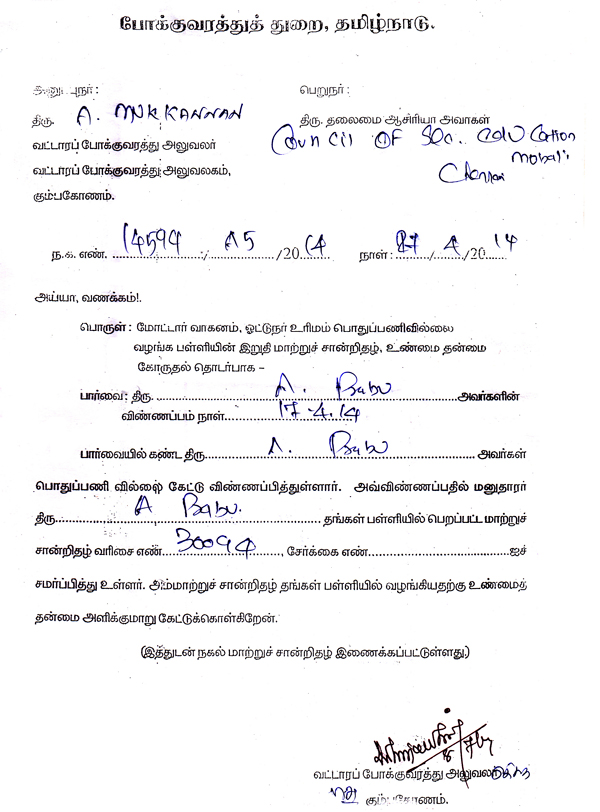 போக்குவரத்துத் துறை, தமிழ்நாடு.
அனுப்புநர் :
பெறுநர் :
திரு. A. MUKKANNAN
திரு. தலைமை ஆசிரியா அவாகள்
வட்டாரப் போக்குவரத்து அலுவலர்
Council OF Sec. Education
வட்டாரப் போக்குவரத்து அலுவலகம்,
Mohali
Chennai
கும்பகோணம்.
ந.க. எண். 14594 / A5 /2014 நாள் : 27/4/2014
அய்யா, வணக்கம்!.
பொருள் : மோட்டார் வாகனம், ஓட்டுநர் உரிமம் பொதுப்பணிவில்லை
வழங்க பள்ளியின் இறுதி மாற்றுச் சான்றிதழ், உண்மை தன்மை
கோருதல் தொடர்பாக –
பார்வை: திரு. A. Babu அவர்களின்
விண்ணப்பம் நாள். 17-4.14
பார்வையில் கண்ட திரு. A. Babu அவர்கள்
பொதுப்பணி வில்லை கேட்டு விண்ணப்பித்துள்ளார். அவ்விண்ணப்பதில் மனுதாரர்
திரு. A Babu. தங்கள் பள்ளியில் பெறப்பட்ட மாற்றுச்
சான்றிதழ் வரிசை எண். 30094, சேர்க்கை எண். ஐச்
சமர்ப்பித்து உள்ளர். அம்மாற்றுச் சான்றிதழ் தங்கள் பள்ளியில் வழங்கியதற்கு உண்மைத்
தன்மை அளிக்குமாறு கேட்டுக்கொள்கிறேன்.
(இத்துடன் நகல் மாற்றுச் சான்றிதழ் இணைக்கப்பட்டுள்ளது,)
வட்டாரப் போக்குவரத்து அலுவலர்
கும்பகோணம்.